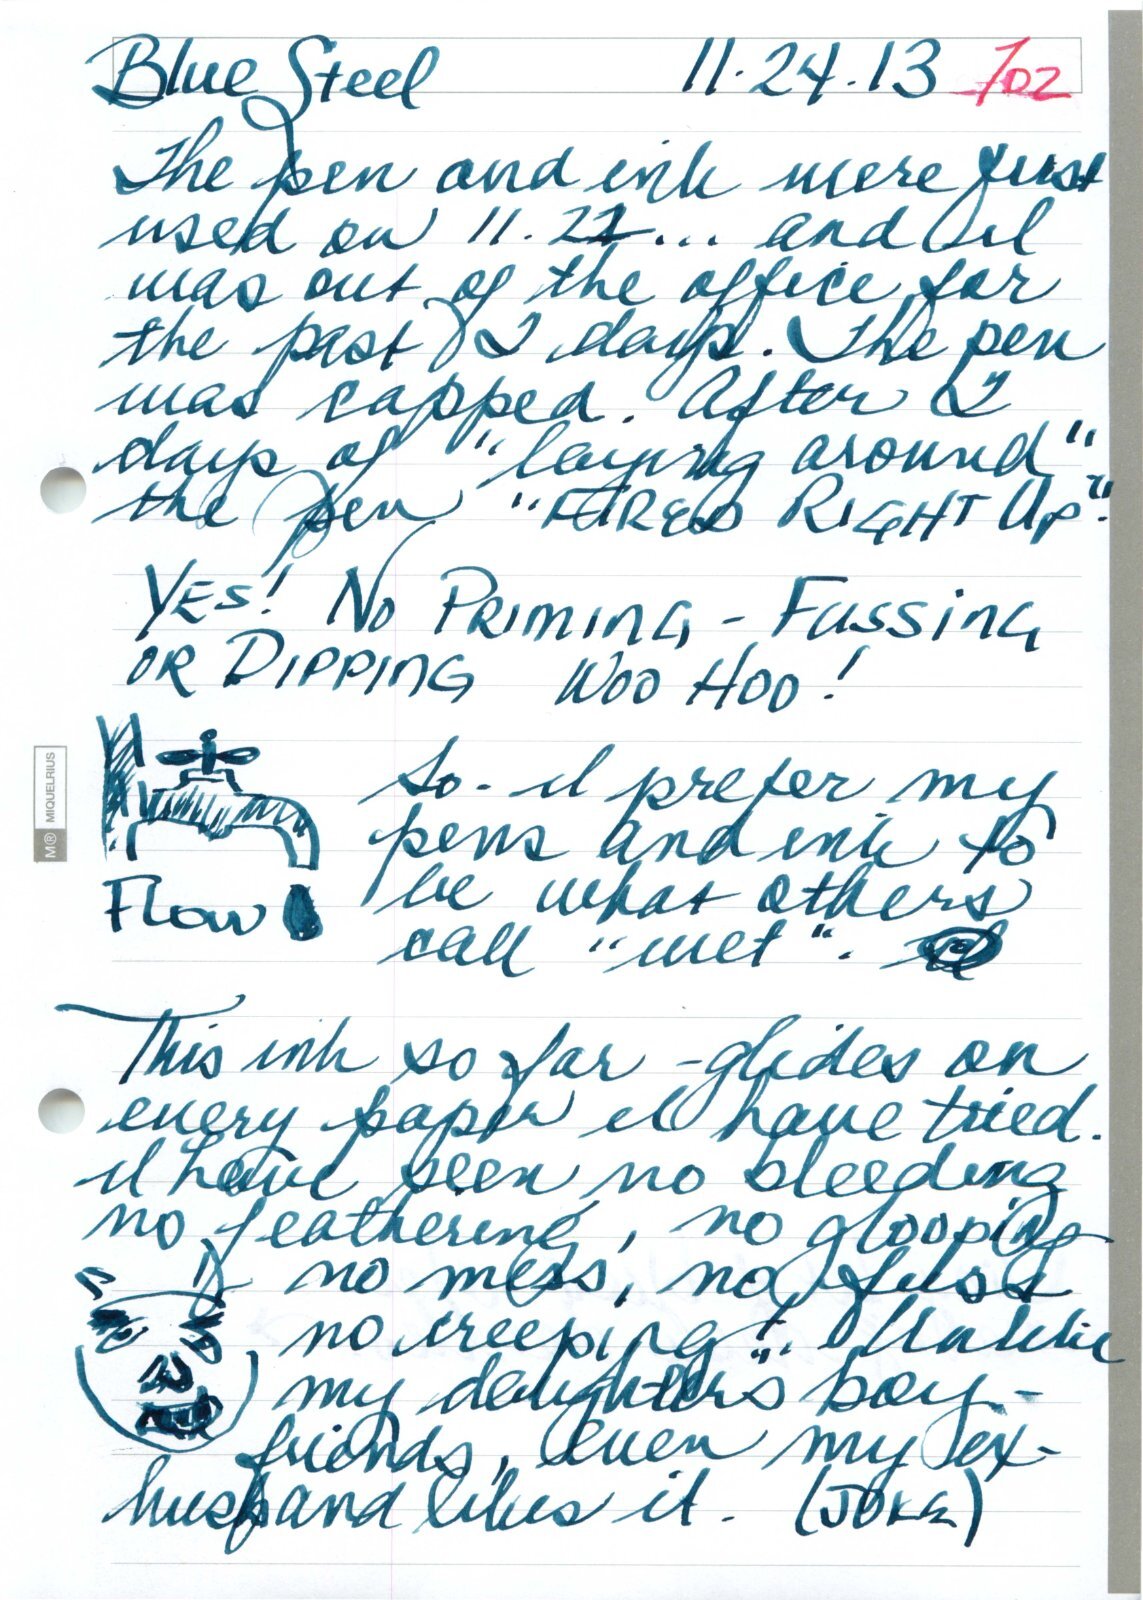 Blue Steel 11.24.13 7oz
The pen and ink were just
used on 11.22... and I
was out of the office for
the past 2 days. The pen
was capped. After 2
days of "laying around"
the pen "FIRED RIGHT UP".
YES! NO PRIMING - FUSSING
OR DIPPING WOO HOO!
So - I prefer my
pens and ink to
be what others
call "wet".
Flow
M® MIQUELRIUS
This ink so far - glides on
every paper I have tried.
I have seen no bleeding
no feathering, no glooping
no mess, no fuss
no creeping". Unlike
my daughters boy-
friends, even my ex-
husband likes it. (JOKE)